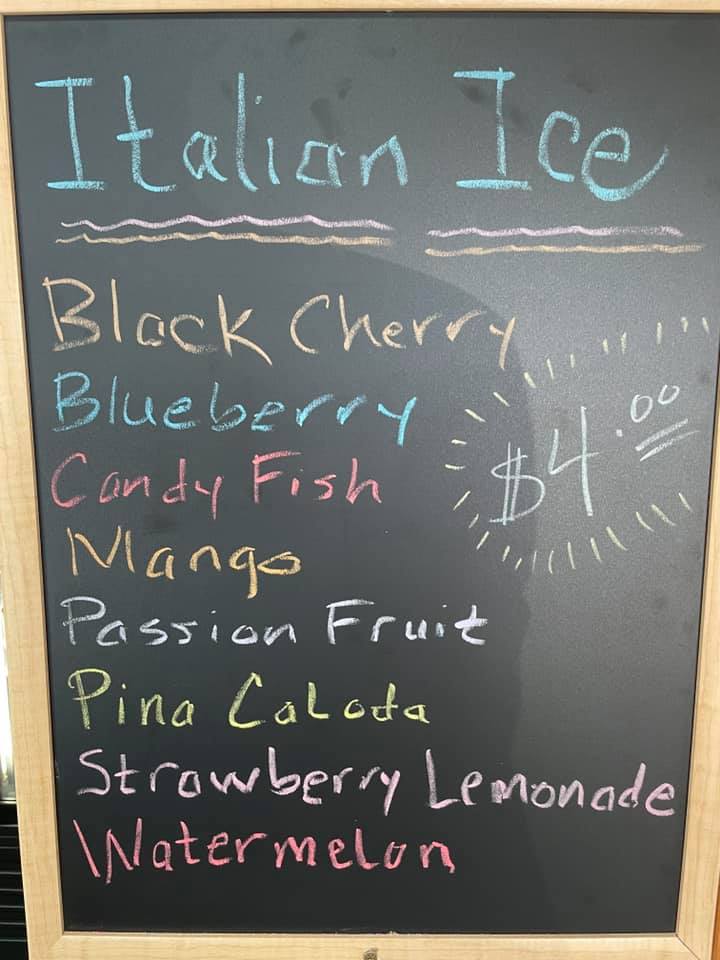 Italian Ice
Black Cherry
Blueberry
$4.00
Candy Fish
Mango
Passion Fruit
Pina CaLada
Strawberry Lemonade
Watermelon